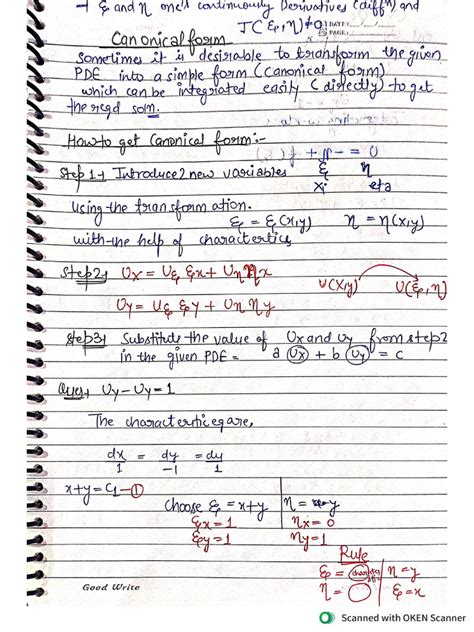 ξ and η one's continuously Derivatives (diffn) and
J(ξ, η) ≠ 0
DATE:
PAGE:
Canonical form
Sometimes it is desirable to transform the given
PDE into a simple form (canonical form)
which can be integrated easily (directly) to get
the reqd soln.
How to get Canonical form:-
Step 1→ Introduce 2 new variables ξ η
Xi eta
Using the transformation.
ξ = ξ(x,y) η = η(x,y)
with the help of characteristics
Step 2→ Ux = Uξ ξx + Uη ηx
U(x,y) U(ξ, η)
Uy = Uξ ξy + Uη ηy
Step 3→ Substitute the value of Ux and Uy from step 2
in the given PDE = a Ux + b Uy = c
Ques→ Ux - Uy = 1
The characteristics are,
dx/1 = dy/-1 = du/1
x+y = C1 - ①
Choose ξ = x+y η = y
ξx = 1 ηx = 0
ξy = 1 ηy = 1
Rule
ξ = η = y
η = ξ = x
Good Write
Scanned with OKEN Scanner